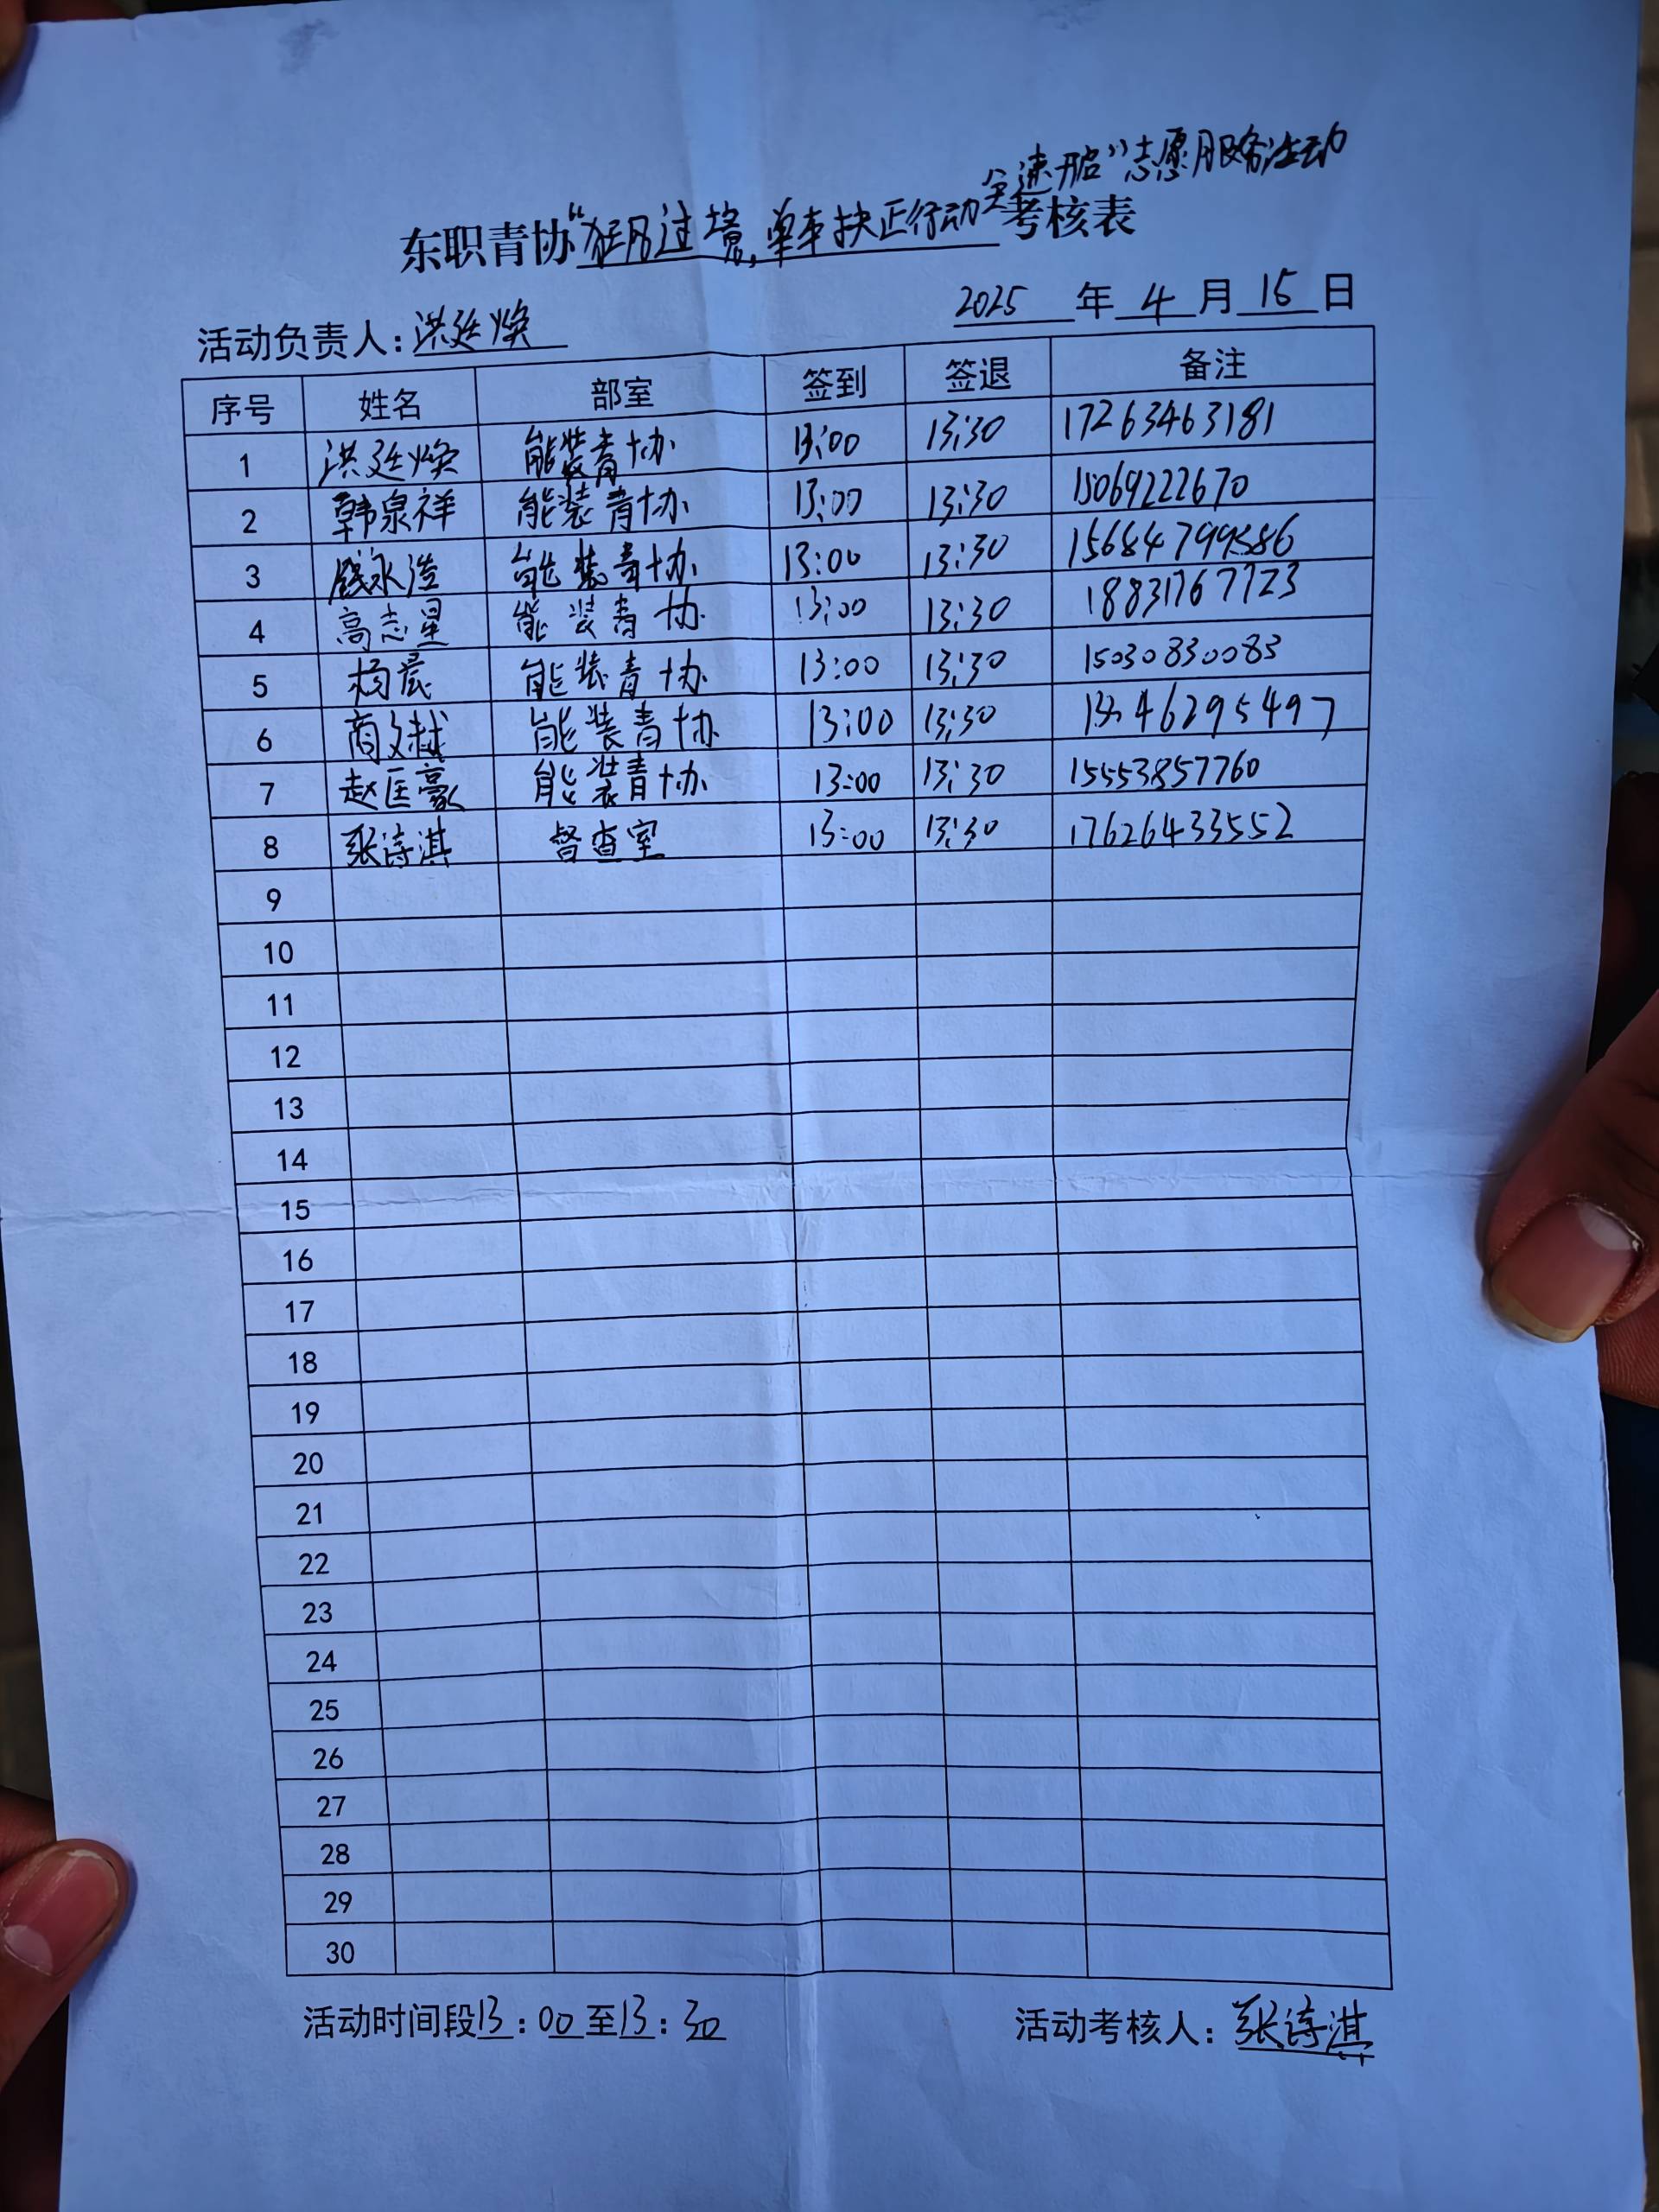 全速开启”志愿服务活动
东职青协“狂风过境,单车扶正行动考核表
2025年4月15日
活动负责人:洪廷焕
序号 姓名 部室 签到 签退 备注
1 洪廷焕 能装青协 13:00 13:30 17263463181
2 韩泉祥 能装青协 13:00 13:30 15069222670
3 永浩 能装青协 13:00 13:30 15684799586
4 高志星 能装青协 13:00 13:30 18831767723
5 杨晨 能装青协 13:00 13:30 15030830083
6 商文越 能装青协 13:00 13:30
7 赵匡豪 能装青协 13:00 13:30 15553857760
8 张诗淇 督查室 13:00 13:30 17626433552
9
10
11
12
13
14
15
16
17
18
19
20
21
22
23
24
25
26
27
28
29
30
活动时间段13:00至13:30 活动考核人:张诗淇